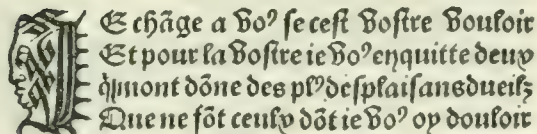 IE chãge a voꝰ ſe ceſt voſtre vouloir
Et pour la voſtre ie voꝰ en quitte deux
qͥ mont dõne des plꝰ deſplaiſans dueilz
Que ne fõt ceulx dõt ie voꝰ oy douloir